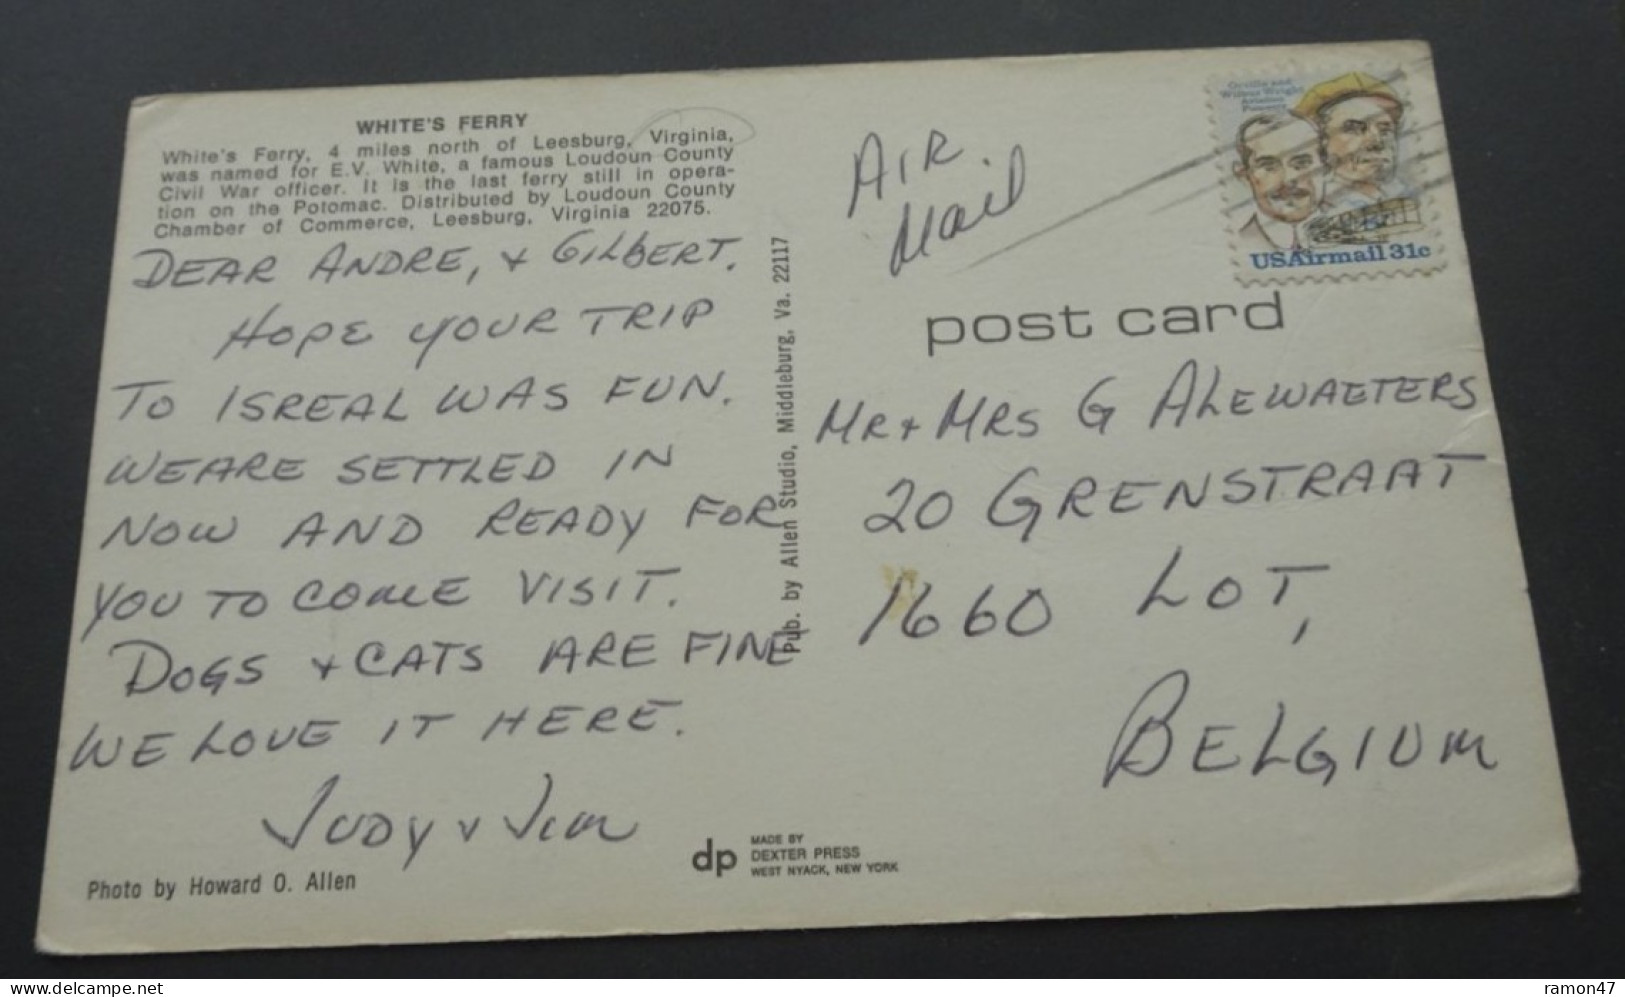 WHITE'S FERRY
White's Ferry, 4 miles north of Leesburg, Virginia,
was named for E.V. White, a famous Loudoun County
Civil War officer. It is the last ferry still in opera-
tion on the Potomac. Distributed by Loudoun County
Chamber of Commerce, Leesburg, Virginia 22075.
DEAR ANDRE, & GILBERT.
HOPE YOUR TRIP
TO ISREAL WAS FUN.
WE ARE SETTLED IN
NOW AND READY FOR
YOU TO COME VISIT.
DOGS & CATS ARE FINE
WE LOVE IT HERE.
JUDY & JIM
Photo by Howard O. Allen
Pub. by Allen Studio, Middleburg, Va. 22117
dp
MADE BY
DEXTER PRESS
WEST NYACK, NEW YORK
AIR
Mail
Orville and
Wilbur Wright
Aviation
Pioneers
USAirmail 31c
post card
MR & MRS G ALEWAETERS
20 GRENSTRAAT
1660 LOT,
BELGIUM
delcampe.net
ramon47